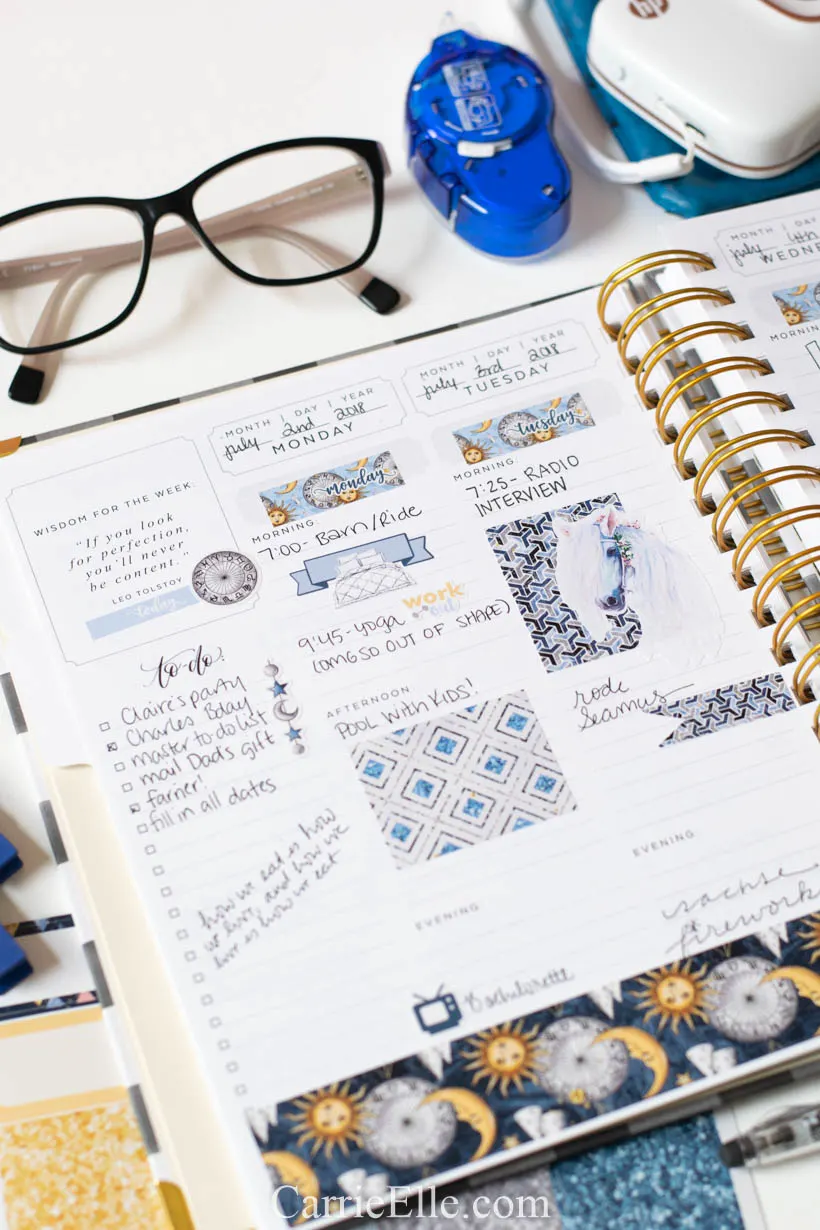 hp
MONTH | DAY | YEAR
july 2nd 2018
MONDAY
MONTH | DAY | YEAR
july 3rd 2018
TUESDAY
MONTH | DAY
july 4th
WEDNE
WISDOM FOR THE WEEK:
"If you look
for perfection,
you'll never
be content."
LEO TOLSTOY
today
to-do:
Claire's party
Charles Bday
master to do list
mail Dad's gift
farrier!
fill in all dates
how we eat is how
we live, and how we
live is how we eat
monday
MORNING:
7:00- Barn/Ride
work
out
9:45-yoga
(OMG SO OUT OF SHAPE)
AFTERNOON
POOL WITH KIDS!
EVENING
Bachelorette
tuesday
MORNING
7:25- RADIO
INTERVIEW
rode
Seamus
EVENING
sachse
fireworks
MORNIN
CarrieElle.com